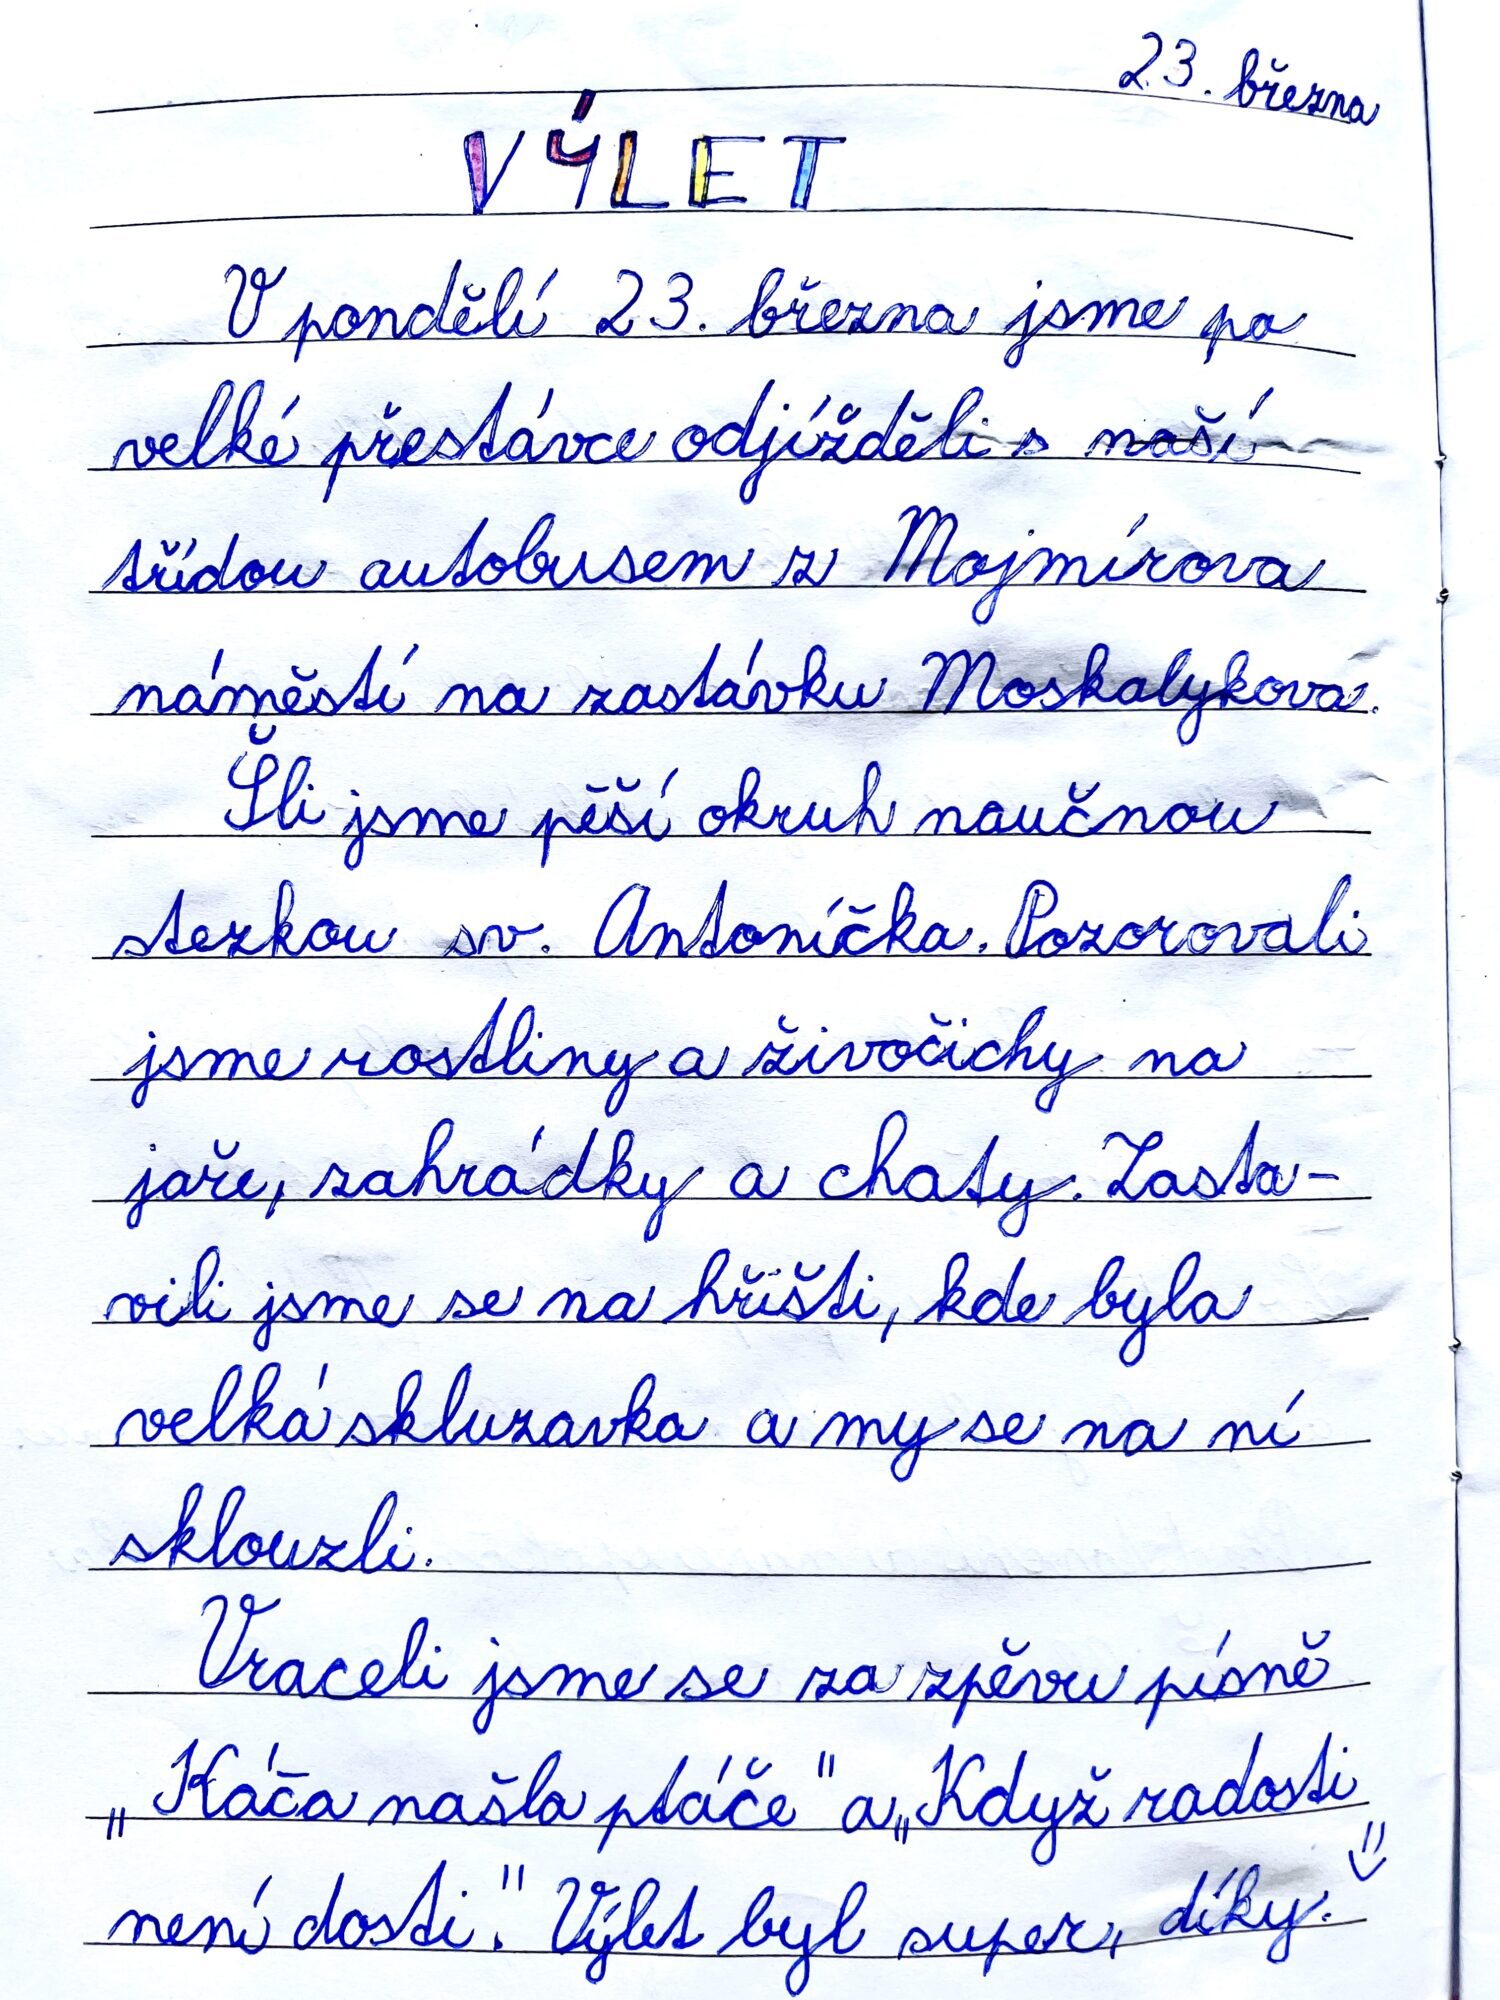 23. března
VÝLET
V pondělí 23. března jsme po
velké přestávce odjížděli s naší
třídou autobusem z Mojmírova
náměstí na zastávku Moskalykova.
Šli jsme pěší okruh naučnou
stezkou sv. Antoníčka. Pozorovali
jsme rostliny a živočichy na
jaře, zahrádky a chaty. Zasta-
vili jsme se na hřišti, kde byla
velká skluzavka a my se na ní
sklouzli.
Vraceli jsme se za zpěvu písně
„Káča našla ptáče" a „Když radosti
není dosti." Výlet byl super, díky.